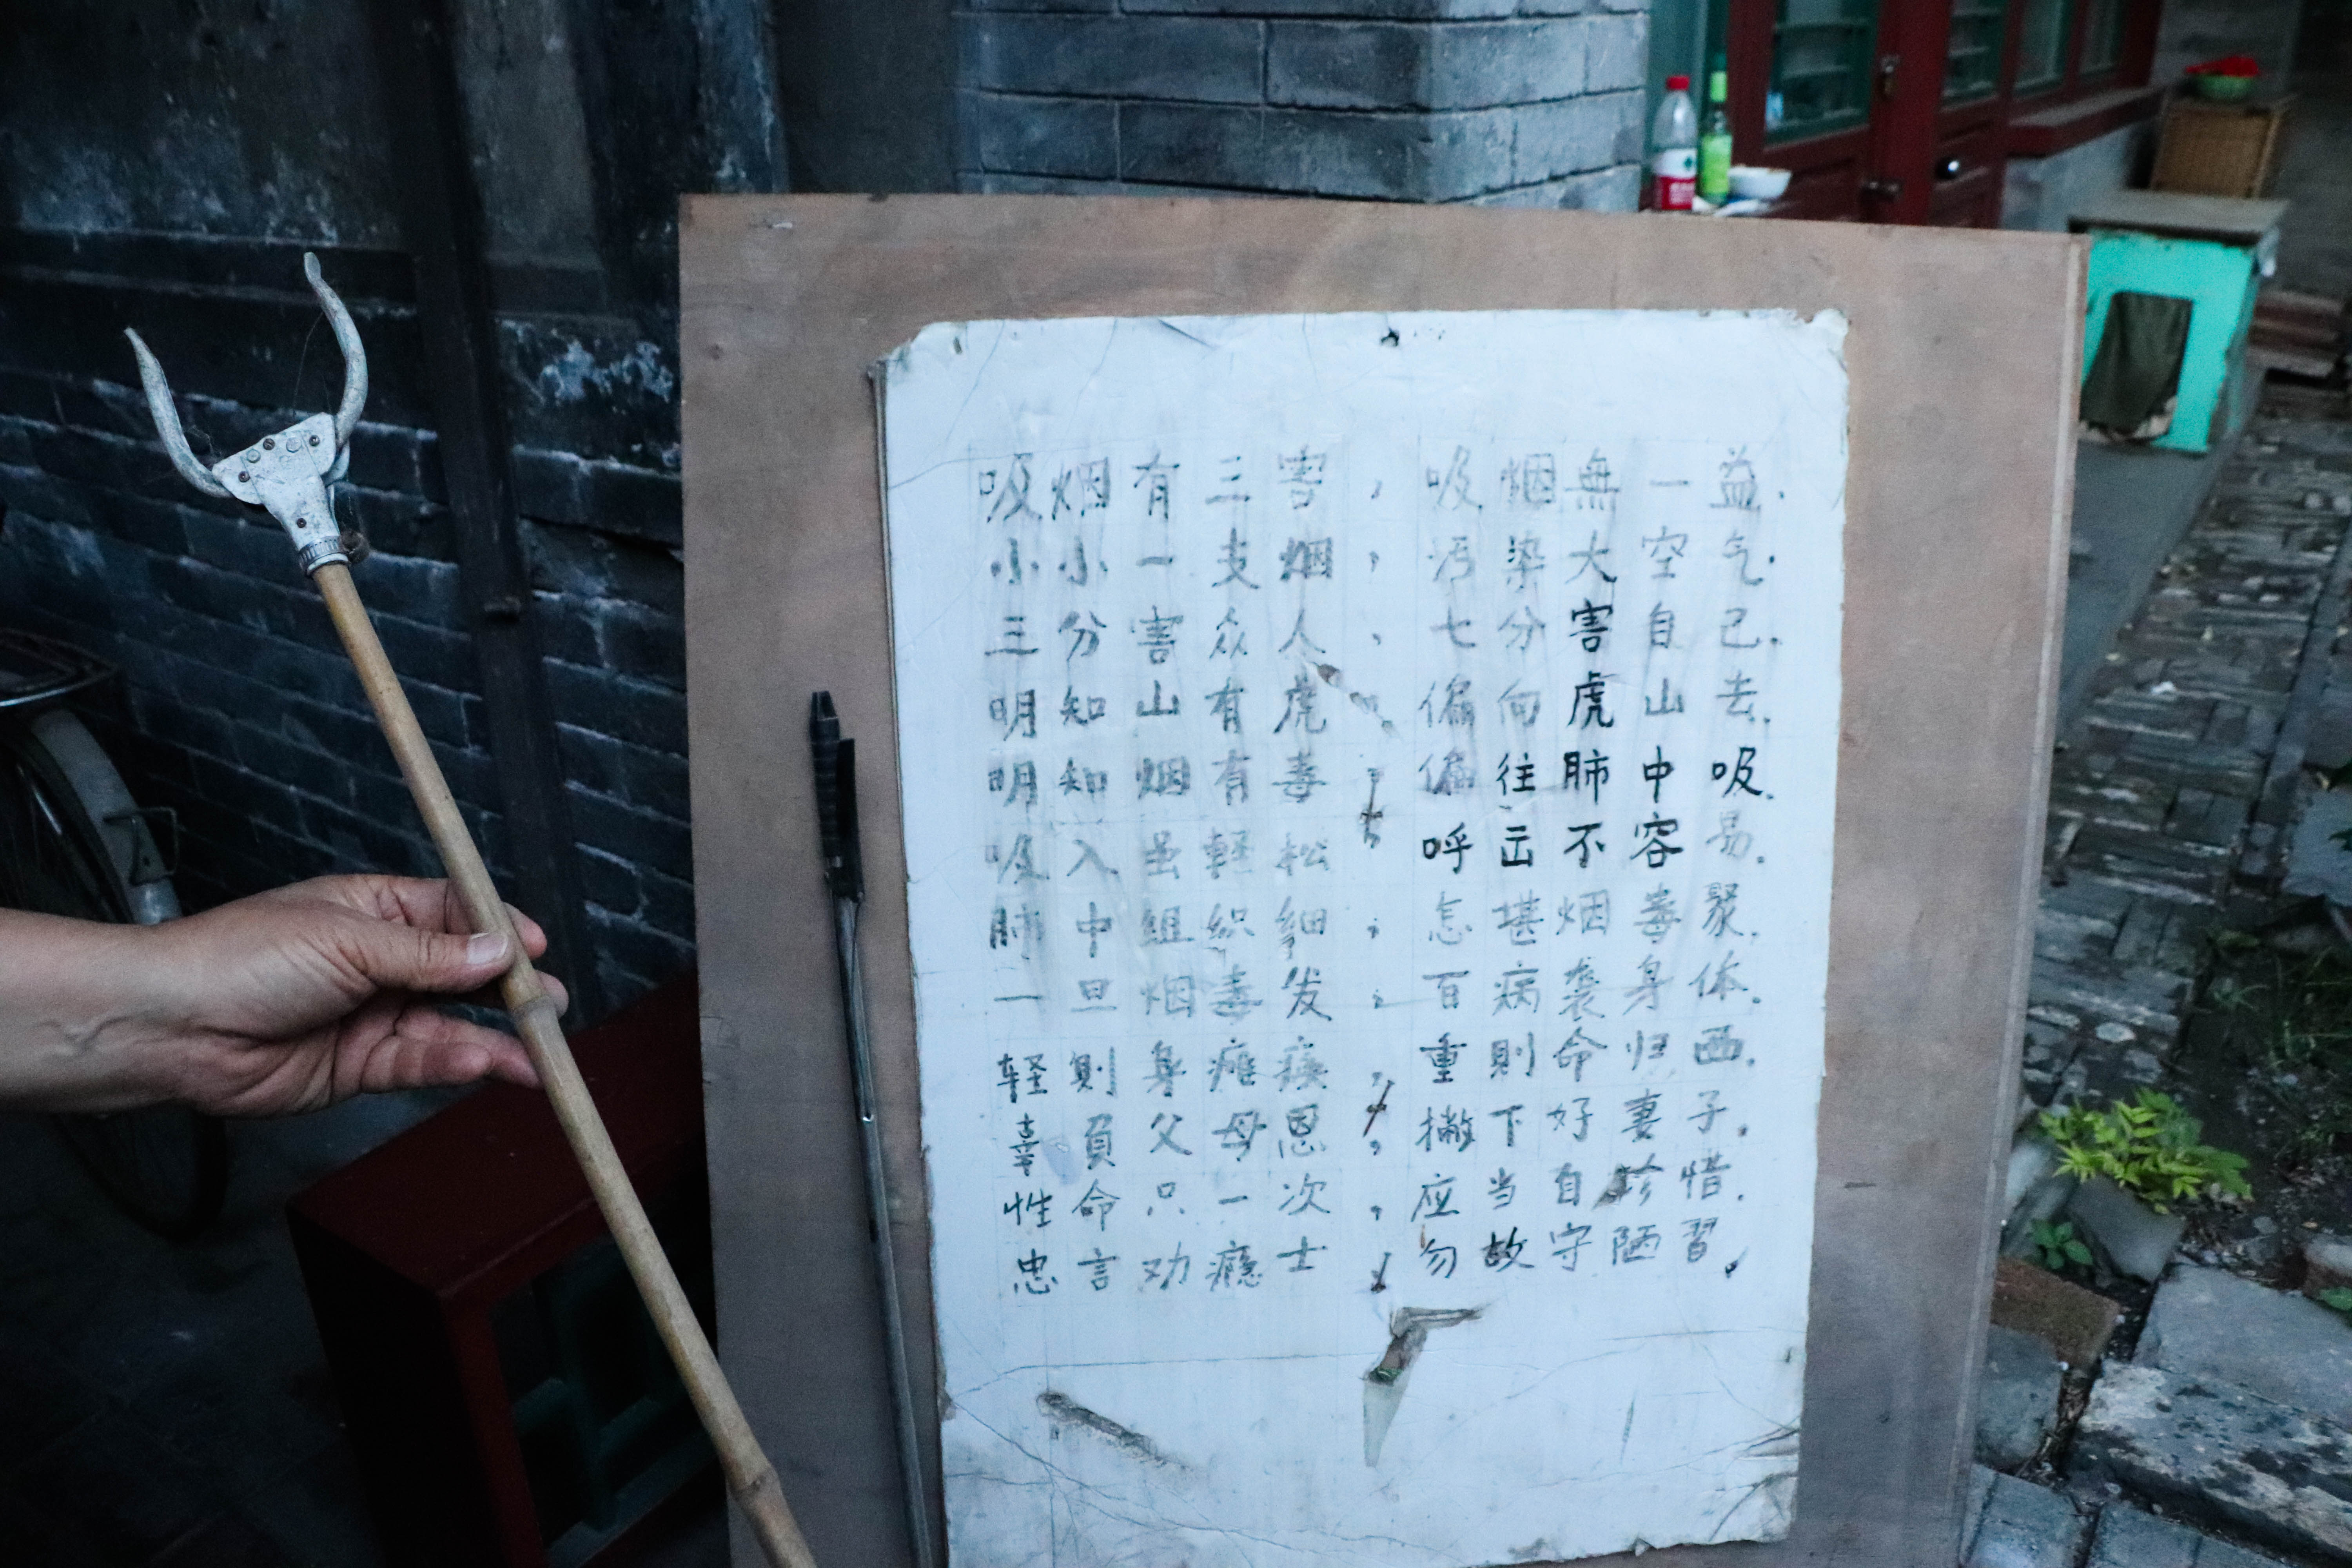 吸烟有三害，吸烟無一益.
小小一支烟，污染大空气.
三分害众人，七分害自己.
明知山有虎，偏向虎山去.
明知烟有毒，偏往肺中吸.
吸入虽轻松，呼出不容易.
肺中组织细，怎堪烟毒聚.
一旦烟毒发，百病袭身体.
轻則身瘫痪，重則命归西.
辜負父母恩，撇下好妻子.
性命只一次，应当自珍惜.
忠言劝瘾士，勿故守陋習.